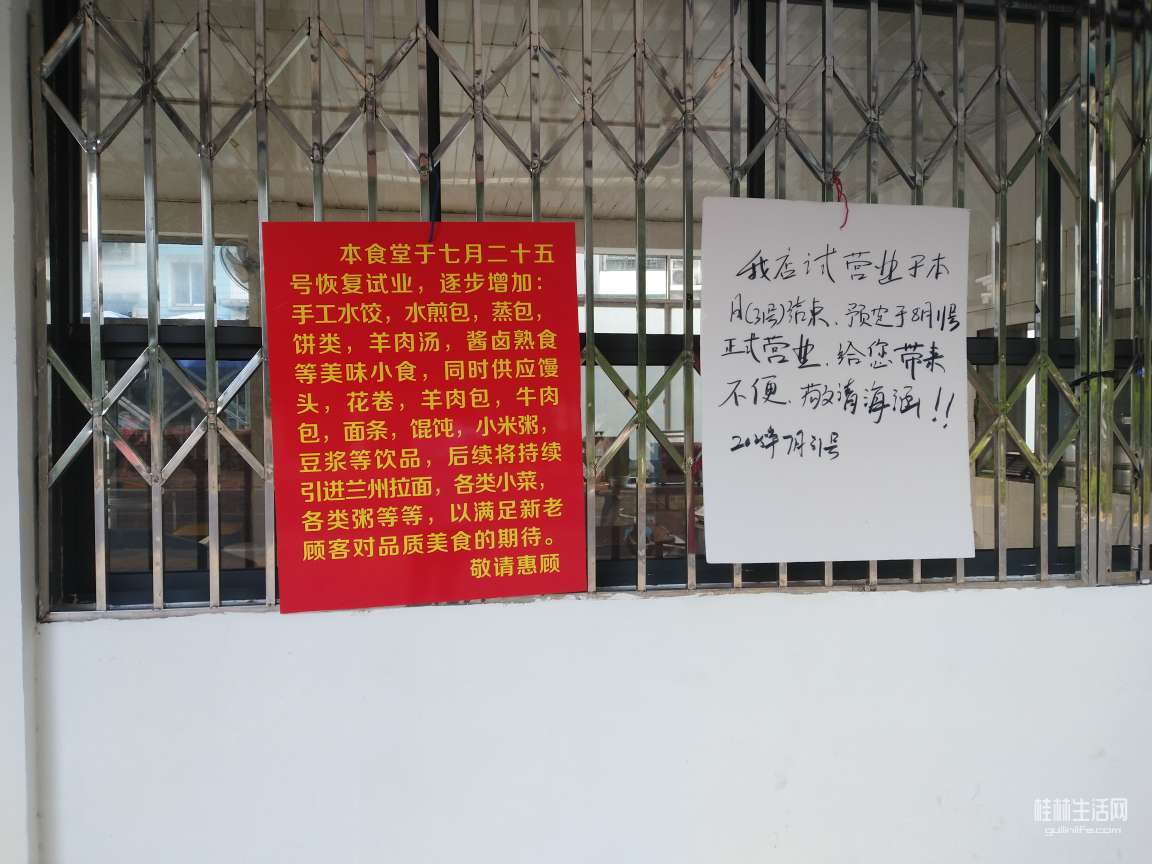 本食堂于七月二十五
号恢复试业，逐步增加：
手工水饺，水煎包，蒸包，
饼类，羊肉汤，酱卤熟食
等美味小食，同时供应馒
头，花卷，羊肉包，牛肉
包，面条，馄饨，小米粥，
豆浆等饮品，后续将持续
引进兰州拉面，各类小菜，
各类粥等等，以满足新老
顾客对品质美食的期待。
敬请惠顾
我店试营业于本
月(31号)结束、预定于8月1号
正式营业、给您带来
不便、敬请海涵!!
7月31号
桂林生活网
guilinlife.com